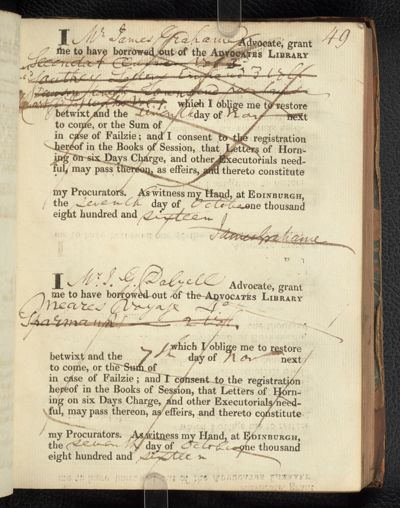 49
I Mr James Grahame Advocate, grant
me to have borrowed out of the ADVOCATES LIBRARY
Vol 3
Southey
which I oblige me to restore
betwixt and the Seventh day of Novr next
to come, or the Sum of
in case of Failzie; and I consent to the registration
hereof in the Books of Session, that Letters of Horn-
ing on six Days Charge, and other Executorials need-
ful, may pass thereon, as effeirs, and thereto constitute
my Procurators. As witness my Hand, at EDINBURGH,
the Seventh day of October one thousand
eight hundred and sixteen
James Grahame
I Mr J. G. Dalyell Advocate, grant
me to have borrowed out of the ADVOCATES LIBRARY
Meares Voyage 4o
Sparmann 2 vols
which I oblige me to restore
betwixt and the 7th day of Novr next
to come, or the Sum of
in case of Failzie; and I consent to the registration
hereof in the Books of Session, that Letters of Horn-
ing on six Days Charge, and other Executorials need-
ful, may pass thereon, as effeirs, and thereto constitute
my Procurators. As witness my Hand, at EDINBURGH,
the seventh day of October one thousand
eight hundred and sixteen